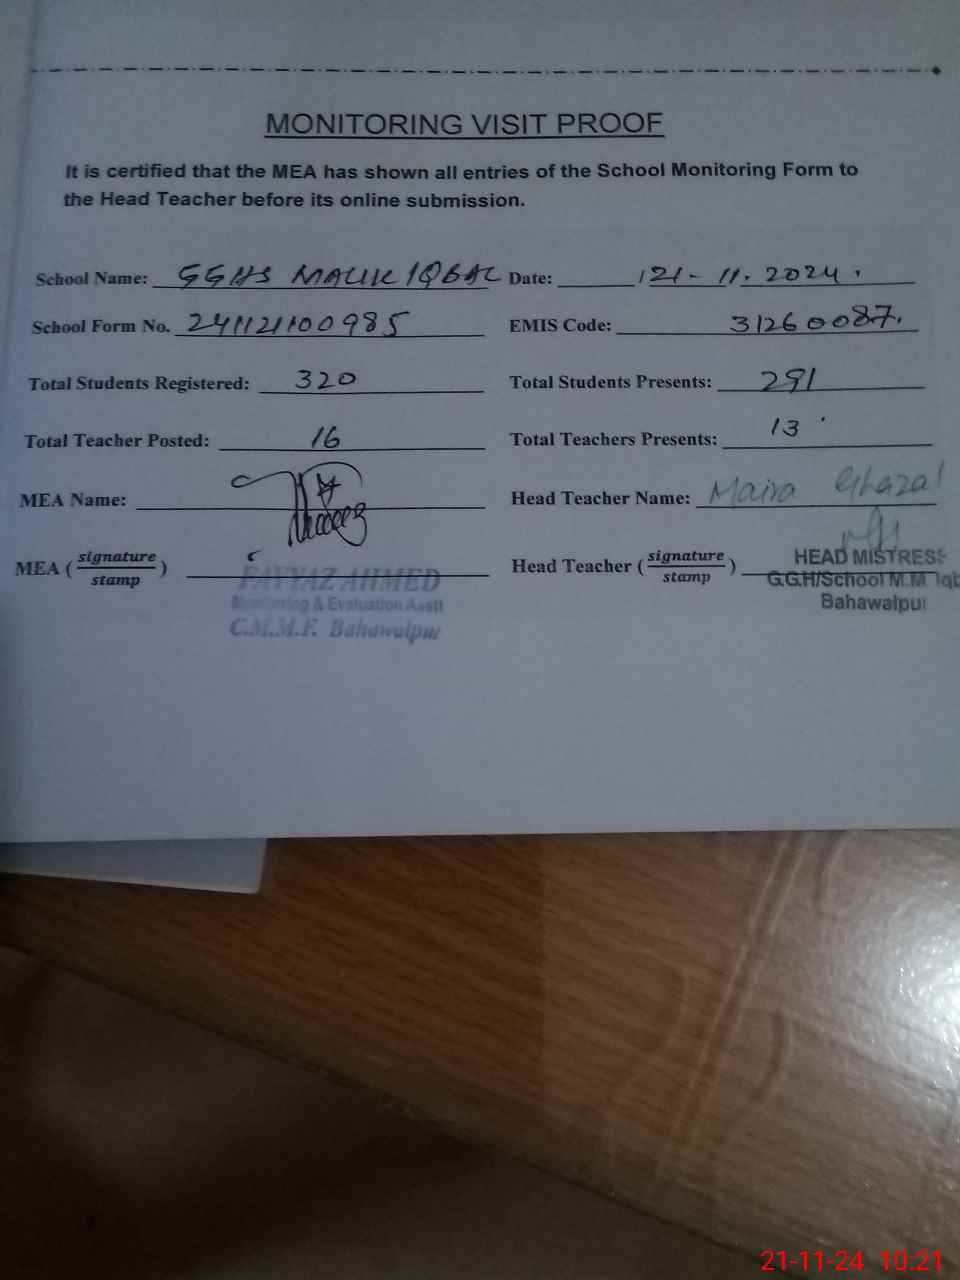 MONITORING VISIT PROOF
It is certified that the MEA has shown all entries of the School Monitoring Form to
the Head Teacher before its online submission.
School Name: GGHS MALIK IQBAL Date: 21-11.2024.
School Form No. 241121100985 EMIS Code: 31260087.
Total Students Registered: 320 Total Students Presents: 291
Total Teacher Posted: 16 Total Teachers Presents: 13
MEA Name: Head Teacher Name: Maira Ghazal
MEA (signature/stamp) Head Teacher (signature/stamp)
FAYYAZ AHMED
Monitoring & Evaluation Asstt
C.M.M.F. Bahawalpur
HEAD MISTRESS
G.G.H/School M.M Iqb
Bahawalpur
21-11-24 10:21